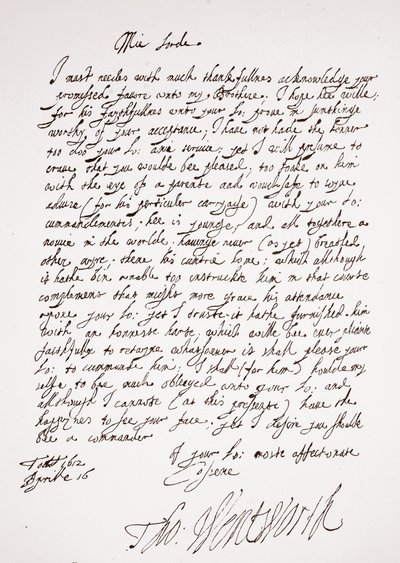 Mie Lorde.
I must needes with much thankfullnes acknowledge your
promissed favore unto my Brothere; I hope hee wille,
for his faythfullnes unto your Lo: prove in sumthinge
worthy of your acceptance; I have not hade the honnor
too doo your Lo: anie service; yet I will presume to
crave that you woulde bee pleased, too looke on him
with the eye of a parente and vouchsafe to
advise (for his particuler carryage) with your Lo:
cummandementes; hee is younge, and all together a
novice in the worlde, havinge never (as yet) breathed
other ayre, thene his cuntrie home; which allthough
it hathe bin unable too instruckte him in that courte
complement that might more grace his attendance
upone your Lo: yet I truste it hathe furnished him
with an honneste harte, which wille bee ever
faithfully to returne whatsoever it shall please your
Lo: to cummande him; I shall (for him) houlde my
selfe to bee much obleeged unto your Lo: and
allthough I cannote (at this presente) have the
happines to see your face, yet I desire you shoulde
bee a commander
of your Lo: moste affectionate
Cosene
1612
Aprill 16
Tho: Wentworth